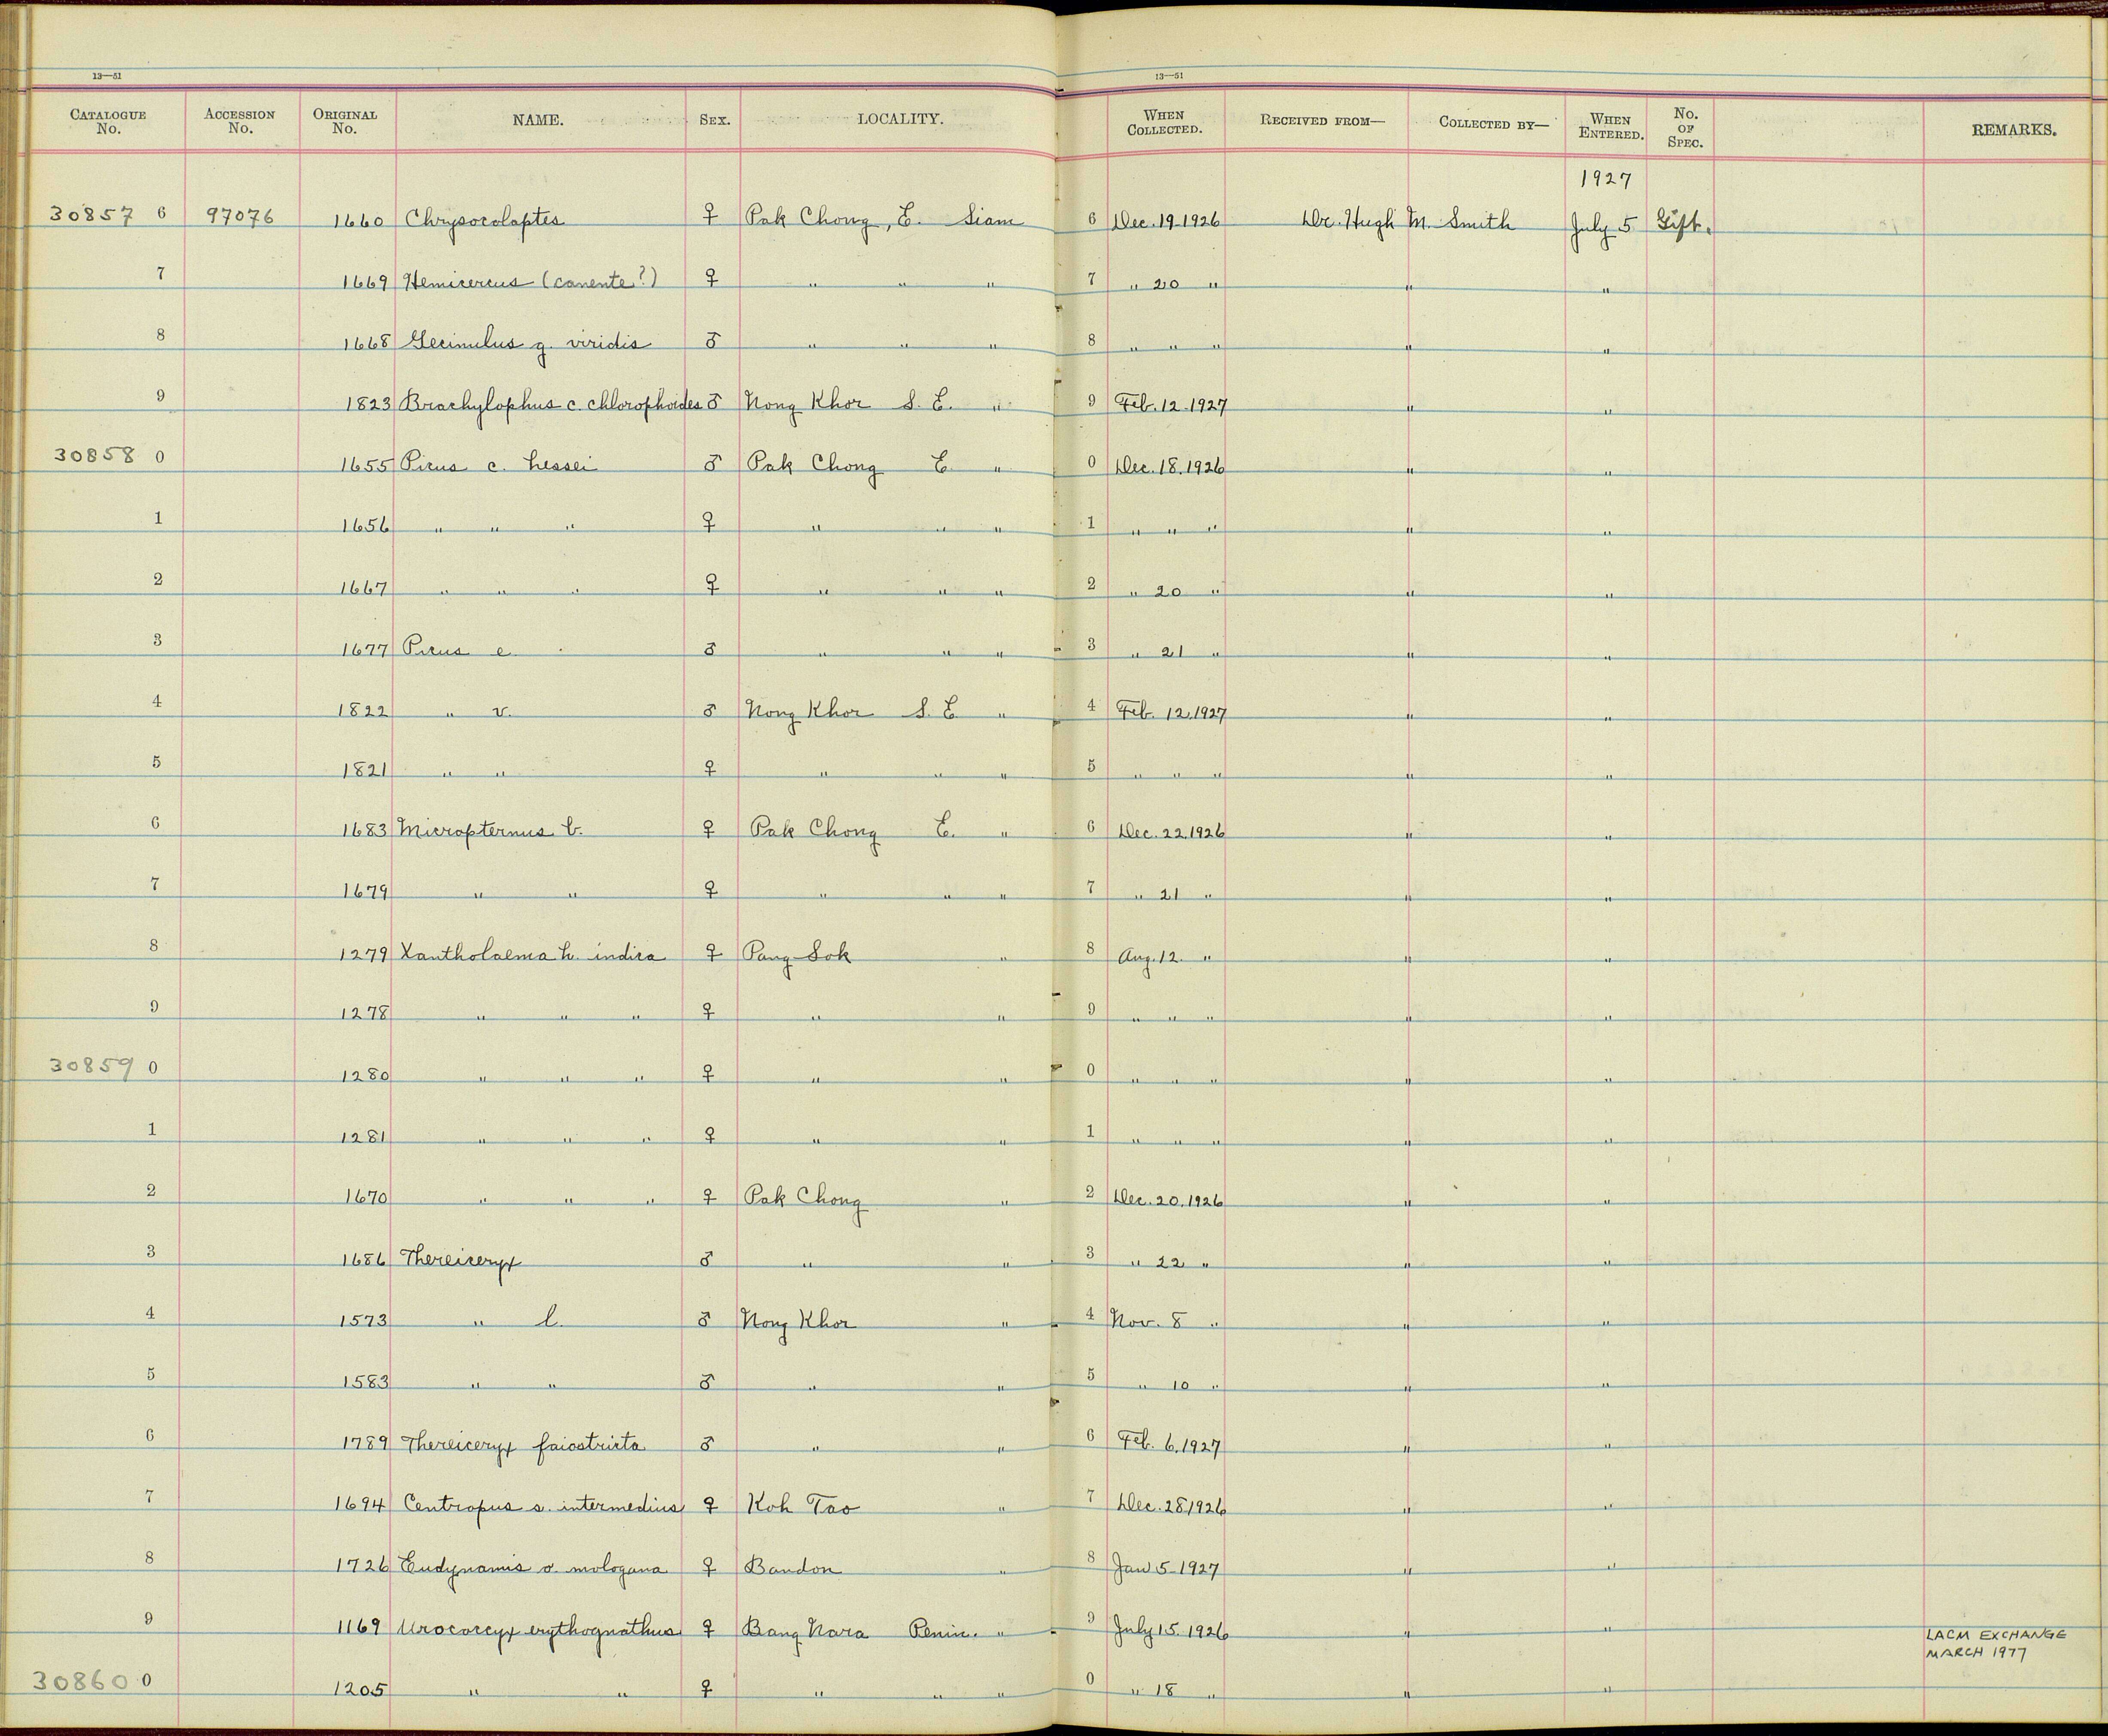 13—51 13—51
CATALOGUE No. ACCESSION No. ORIGINAL No. NAME. SEX. LOCALITY. WHEN COLLECTED. RECEIVED FROM— COLLECTED BY— WHEN ENTERED. No. OF SPEC. REMARKS.
1927
30857 6 97076 1660 Chrysocolaptes ♀ Pak Chong, E. Siam 6 Dec. 19. 1926 Dr. Hugh M. Smith July 5 Gift.
7 1669 Hemicercus (canente?) ♀ " " " 7 " 20 " " "
8 1668 Gecinulus g. viridis ♂ " " " 8 " " " " "
9 1823 Brachylophus c. chlorophoides ♂ Nong Khor S. E. " 9 Feb. 12. 1927 " "
30858 0 1655 Picus c. hessei ♂ Pak Chong E. " 0 Dec. 18. 1926 " "
1 1656 " " " ♀ " " " 1 " " " " "
2 1667 " " " ♀ " " " 2 " 20 " " "
3 1677 Picus c. ♂ " " " 3 " 21 " " "
4 1822 " v. ♂ Nong Khor S. E " 4 Feb. 12. 1927 " "
5 1821 " " ♀ " " " 5 " " " " "
6 1683 Micropternus b. ♀ Pak Chong E. " 6 Dec. 22. 1926 " "
7 1679 " " ♀ " " " 7 " 21 " " "
8 1279 Xantholaema h. indica ♀ Pang Sok " 8 Aug. 12. " " "
9 1278 " " " ♀ " " 9 " " " " "
30859 0 1280 " " " ♀ " " 0 " " " " "
1 1281 " " " ♀ " " 1 " " " " "
2 1670 " " " ♀ Pak Chong " 2 Dec. 20. 1926 " "
3 1686 Thereiceryx ♂ " " 3 " 22 " " "
4 1573 " l. ♂ Nong Khor " 4 Nov. 8 " " "
5 1583 " " ♂ " " 5 " 10 " " "
6 1789 Thereiceryx faiostricta ♂ " " 6 Feb. 6. 1927 " "
7 1694 Centropus s. intermedius ♀ Koh Tao " 7 Dec. 28. 1926 " "
8 1726 Eudynamis o. mologana ♀ Bandon " 8 Jan 5 1927 " "
9 1169 Urococcyx erythognathus ♀ Bang Nara Penin. " 9 July 15. 1926 " " LACM EXCHANGE
MARCH 1977
30860 0 1205 " " ♀ " " " 0 " 18 " " "